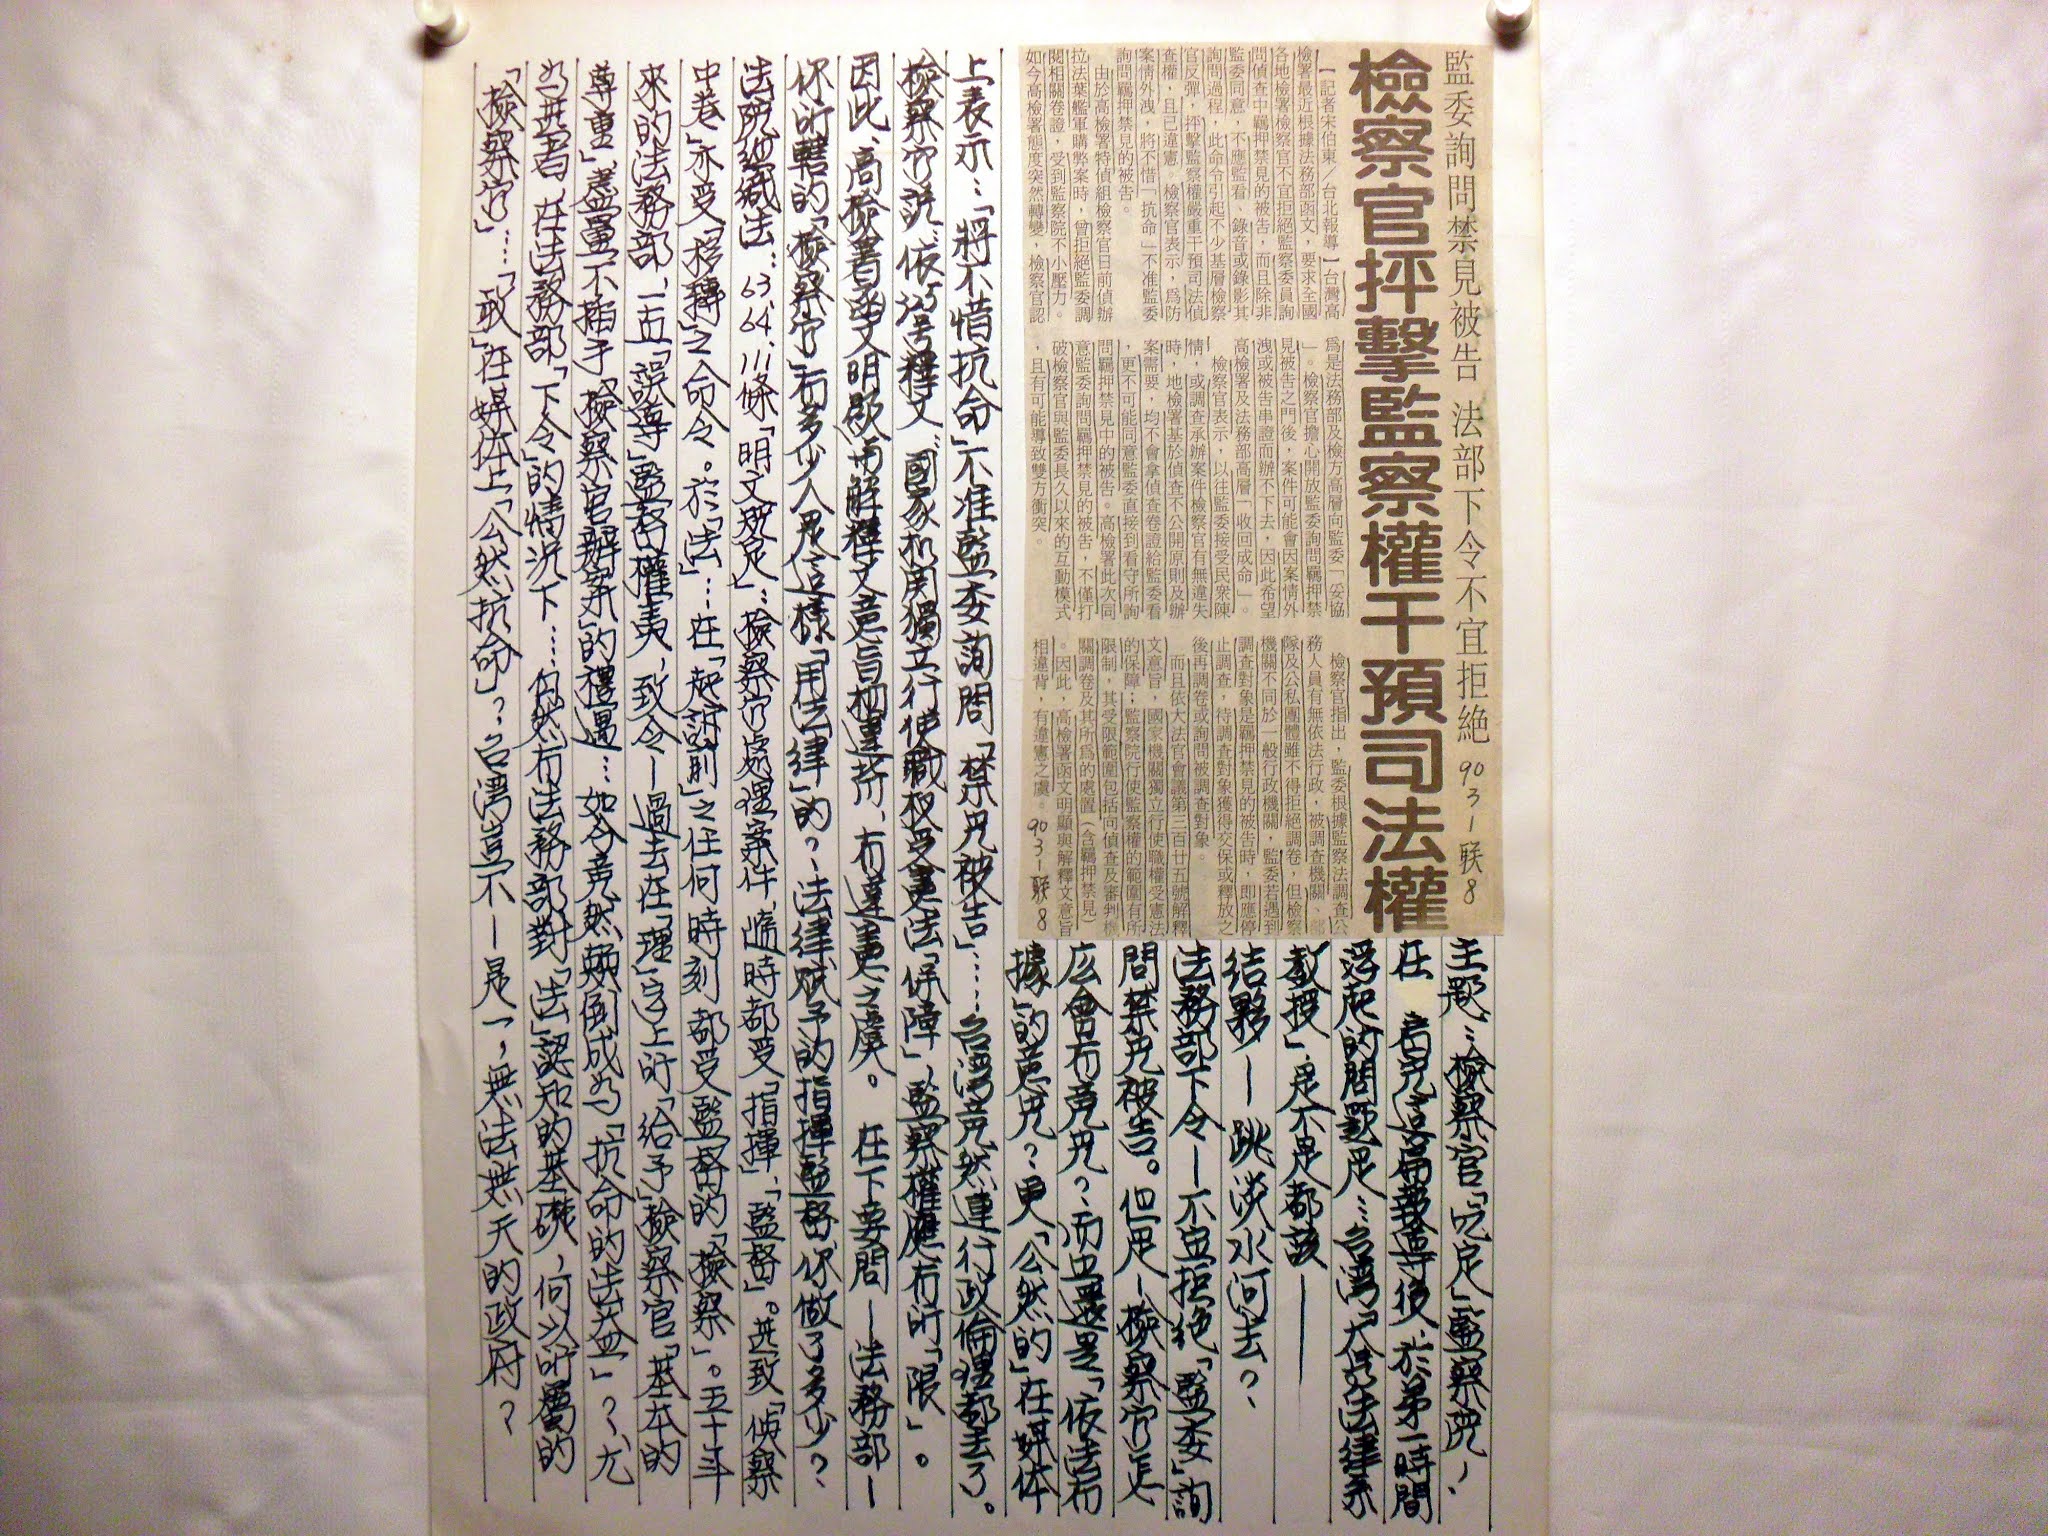 監委詢問禁見被告 法部下令不宜拒絕 90 3 – 联 8
檢察官抨擊監察權干預司法權
【記者宋伯東/台北報導】台灣高
檢署最近根據法務部函文,要求全國
各地檢署檢察官不宜拒絕監察委員詢
問偵查中羈押禁見的被告,而且除非
監委同意,不應監看、錄音或錄影其
詢問過程,此命令引起不少基層檢察
官反彈,抨擊監察權嚴重干預司法偵
查權,且已違憲。檢察官表示,為防
案情外洩,將不惜「抗命」不准監委
詢問羈押禁見的被告。
由於高檢署特偵組檢察官日前偵辦
拉法葉艦軍購弊案時,曾拒絕監委調
閱相關卷證,受到監察院不小壓力。
如今高檢署態度突然轉變,檢察官認
為是法務部及檢方高層向監委「妥協
」。檢察官擔心開放監委詢問羈押禁
見被告之門後,案件可能會因案情外
洩或被告串證而辦不下去,因此希望
高檢署及法務部高層「收回成命」。
檢察官表示,以往監委接受民眾陳
情,或調查承辦案件檢察官有無違失
時,地檢署基於偵查不公開原則及辦
案需要,均不會拿偵查卷證給監委看
,更不可能同意監委直接到看守所詢
問羈押禁見中的被告。高檢署此次同
意監委詢問羈押禁見的被告,不僅打
破檢察官與監委長久以來的互動模式
,且有可能導致雙方衝突。
檢察官指出,監委根據監察法調查公
務人員有無依法行政,被調查機關、部
隊及公私團體雖不得拒絕調卷,但檢察
機關不同於一般行政機關,監委若遇到
調查對象是羈押禁見的被告時,即應停
止調查,待調查對象獲得交保或釋放之
後再調卷或詢問被調查對象。
而且依大法官會議第三百廿五號解釋
文意旨,國家機關獨立行使職權受憲法
的保障;監察院行使監察權的範圍有所
限制,其受限範圍包括向偵查及審判機
關調卷及其所為的處置(含羈押禁見)
。因此,高檢署函文明顯與解釋文意旨
相違背,有違憲之虞。 90 3 – 联 8
主題:檢察官「咒定」監察院,
在 看完這篇報導後,於第一時間
浮起的問題是…台灣「大學法律系
教授」是不是都該——
結夥—跳淡水河去?
法務部下令—不宜拒絕「監委」詢
問禁見被告。但是—檢察官怎
麼會有意見?而且還是「依法有
據」的意見?更「公然的」在媒体
上表示…「將不惜抗命」不准監委詢問「禁見被告」……台灣竟然連行政倫理都去了。
檢察官說:依325号釋文:國家机関獨立行使職权受憲法「保障」,監察權應有所「限」。
因此,高檢署函文明顯有解釋文意旨相違背,有違憲之虞。 在下要問—法務部—
你所轄的「檢察官」有多少人是這樣「用法律」的?—法律賦予的指揮監督,你做了多少?
法院組織法:63、64、111條「明文規定」:檢察官處理案件,隨時都受「指揮」、「監督」。甚致「偵察
中卷」亦受「移轉」之命令。於「法」…在「起訴前」之任何時刻都受監督的「檢察」。五十年
來的法務部,一直「誤導」監督權責,致令—過去在「理」字上所「給予」檢察官「基本的
尊重」,盡量不插手「檢察官辦案」的禮遇…如今竟然顛倒成為「抗命的法益」?尤
為甚者,在法務部「下令」的情況下……仍然有法務部對「法」認知的基礎,何以所屬的
「檢察官」…「敢」在媒体上「公然抗命」?台湾豈不—是一,無法無天的政府?